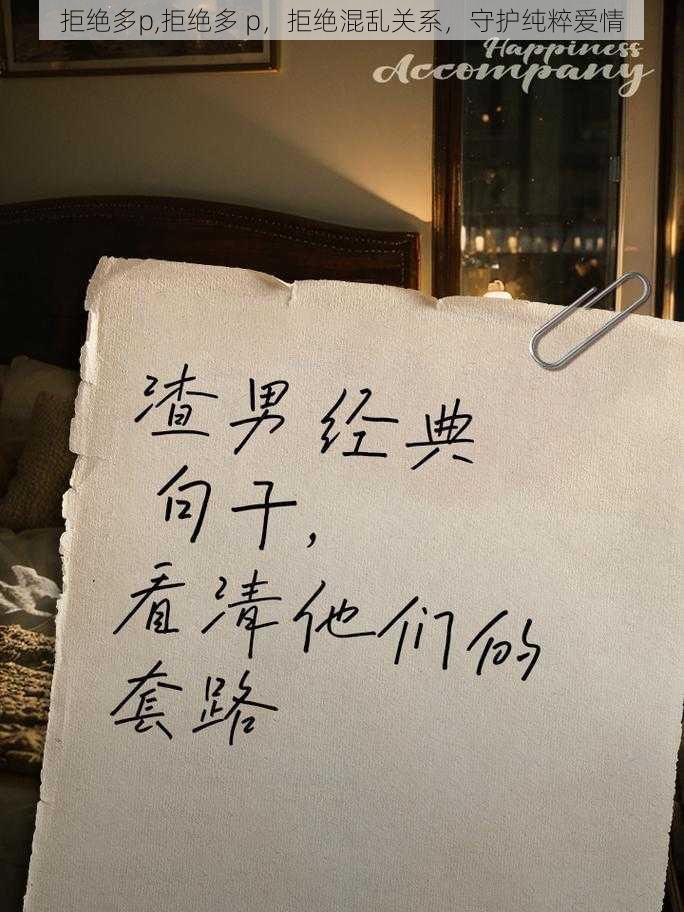 拒绝多p,拒绝多 p，拒绝混乱关系，守护纯粹爱情
Happiness
Accompany
渣男经典
句子，
看清他们的
套路